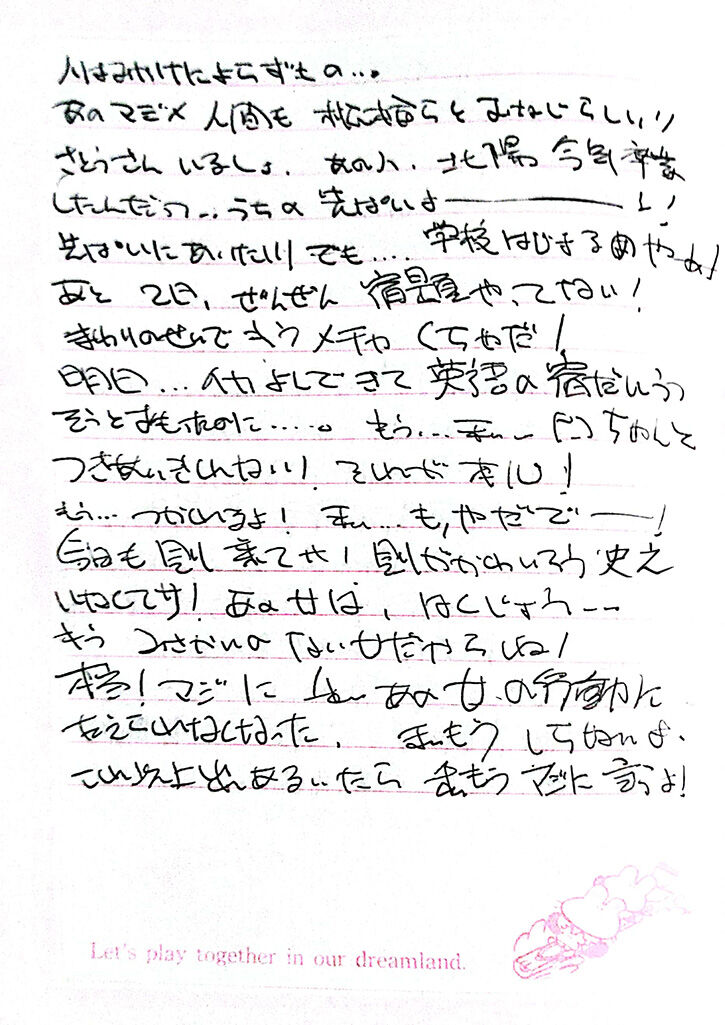 人はみかけによらずもの…。
あのマジメ人間も 松橋らとおなじらしい!!
さとうさん いるしょ. あの人. 北陽 今年卒業
したんだって…うちの先ぱいよ――――!!
先ぱいにあいたい!! でも…. 学校はじまるのやーぁ!
あと 2日、ぜんぜん 宿題やってない!
まわりのせいでもうメチャくちゃだ!
明日… 英語の宿だいうつ
そうとおもたのに…..。 もう… ちゃんと
つきあいきれない! それでが本心!
もう… つかれるよ! も,やだでー―!
今日も 来てサ! がかわいそう
いなくてサ! あの女は、はくじょう――
もう みさかいのない女だからね!
本当! マジに あの女の行動に
たえていけなくなった. もう しらねぃよ.
これ以上 あるいたら もうマジに言うよ!
Let's play together in our dreamland.